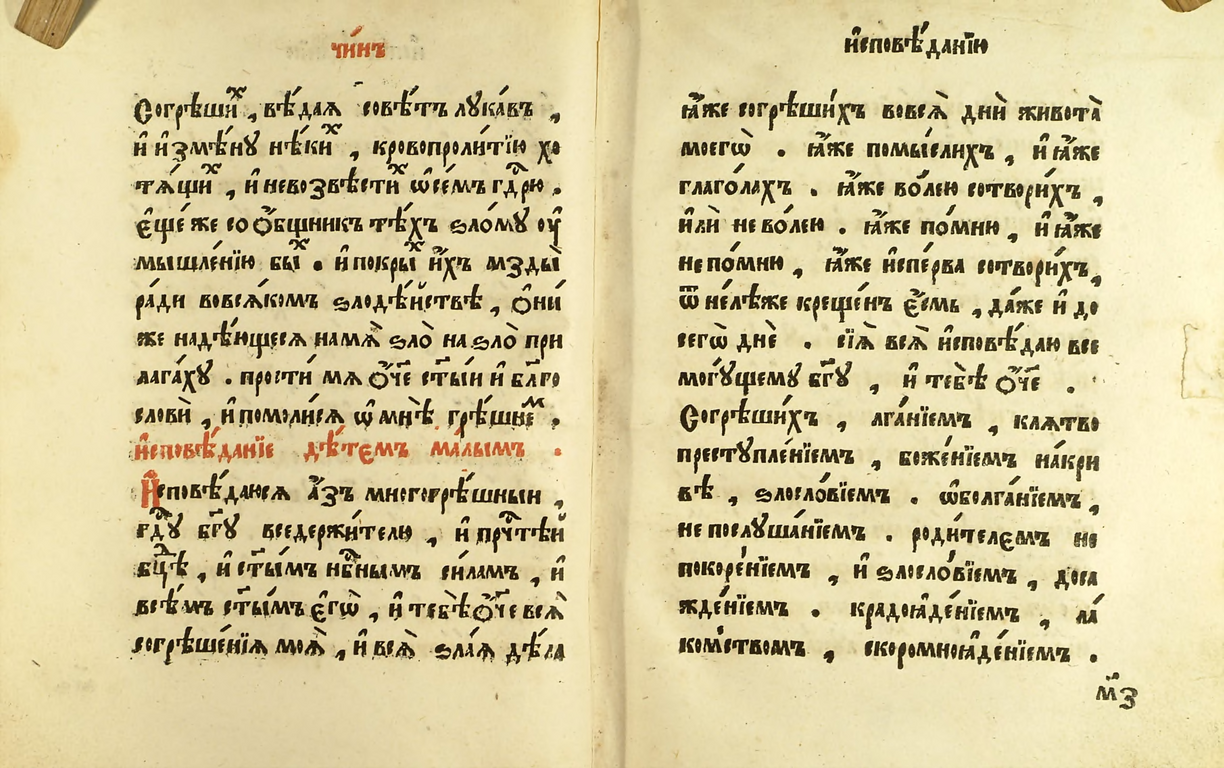 чи́нъ
Согрѣши́х , вѣ́дая совѣ́тъ лука́въ ,
и҆ и҆змѣ́ну нѣ́ких , кровопроли́тїю хо
тя́щих , и҆ невозвѣсти́х ѡ҆ се́мъ гдⷭ҇рю .
є҆ще́ же со ѻ҆́бщникъ тѣ́хъ ѕло́му оу҆
мышле́нїю бы́х . и҆ покры́х и҆́хъ мзды̀
ра́ди вовся́комъ ѕлодѣ́йствѣ , ѻ҆ни́
же надѣ́ющеся намѧ̀ ѕло̀ на ѕло̀ при
лага́ху . прости́ мѧ ѻ҆́ч҃е ст҃ы́и и҆ бл҃го
словѝ , и҆ помоли́ся ѡ҆ мнѣ̀ грѣ́шнем .
и҆сповѣ́данїе дѣ́темъ ма́лымъ .
И҆сповѣ́даюся а҆́зъ многогрѣ́шныи ,
гдⷭ҇у бг҃у вседержи́телю , и҆ прчⷭ҇тѣи
бцⷣѣ , и҆ ст҃ы́мъ нбⷭ҇нымъ си́ламъ , и҆
всѣ́мъ ст҃ы́мъ є҆гѡ̀ , и҆ тебѣ̀ ѻ҆́ч҃е всѧ̀
согрѣше́нїя моѧ̀ , и҆ всѧ̀ ѕла́ѧ дѣ́ла
и҆сповѣ́данїю
ꙗ҆́же согрѣши́хъ вовсѧ̀ днѝ живота̀
моегѡ̀ . ꙗ҆́же помы́слихъ , и҆ ꙗ҆́же
глаго́лахъ . ꙗ҆́же во́лею сотвори́хъ ,
и҆лѝ нево́лею . ꙗ҆́же по́мню , и҆ ꙗ҆́же
непо́мню , ꙗ҆́же и҆спе́рва сотвори́хъ ,
ѿ не́лѣже креще́нъ є҆́смь , да́же и҆ до
сегѡ̀ днѐ . сїѧ̀ всѧ̀ и҆сповѣ́даю все
могу́щему бг҃у , и҆ тебѣ̀ ѻ҆́ч҃е .
Согрѣши́хъ , лга́нїемъ , клятво
преступле́нїемъ , боже́нїемъ на́кри
вѣ , ѕлосло́вїемъ . ѡ҆болга́нїемъ ,
не послуша́нїемъ . роди́телемъ не
покоре́нїемъ , и҆ ѕлосло́вїемъ , доса
жде́нїемъ . крадоꙗде́нїемъ , ла́
комствомъ , скоромноꙗде́нїемъ .
м҃з